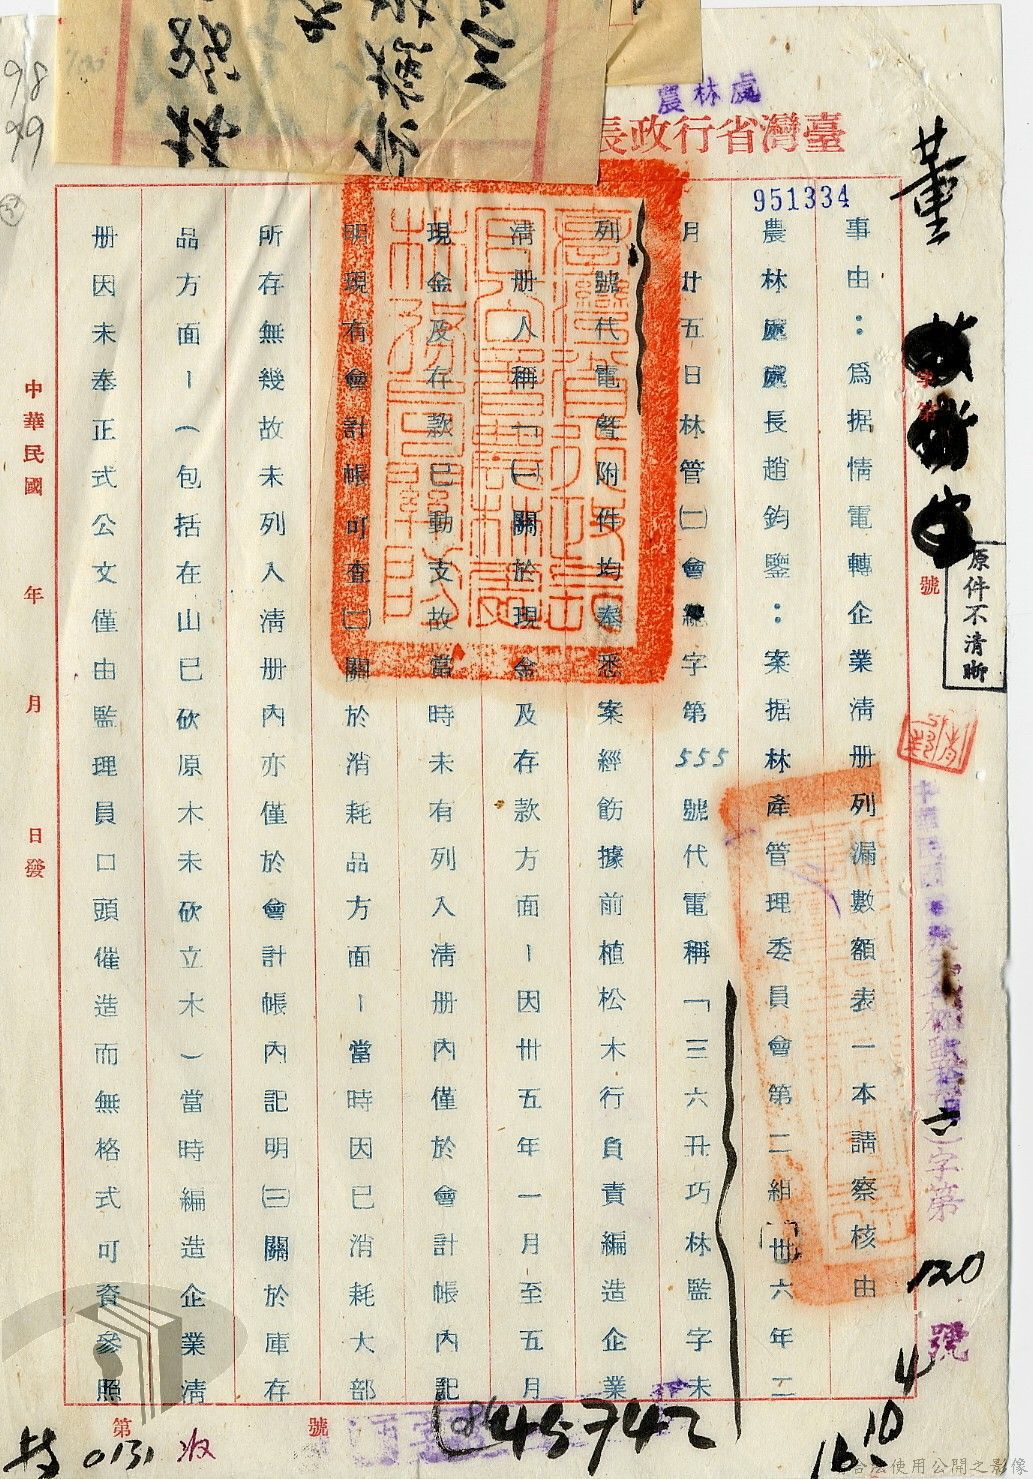 農林處
臺灣省行政長
951334
事由：為据情電轉企業清册列漏數額表一本請察核由
農林處處長趙鈞鑒：案据林產管理委員會第二組卅六年二
月廿五日林管㈡會總字第555號代電稱「三六丑巧林監字未
列號代電暨附件均奉悉案經飭據前植松木行負責編造企業
清册人稱「㈠關於現金及存款方面－因卅五年一月至五月
現金及存款已動支故當時未有列入清册內僅於會計帳內記
明現有會計帳可查㈡關於消耗品方面－當時因已消耗大部
所存無幾故未列入清册內亦僅於會計帳內記明㈢關於庫存
品方面－（包括在山已砍原木未砍立木）當時編造企業清
册因未奉正式公文僅由監理員口頭催造而無格式可資參照
中華民國 年 月 日發
號
原件不清晰
字第
120
號
第 號
0131 收
45742
4
10
16
98
99
合法使用公開之影像